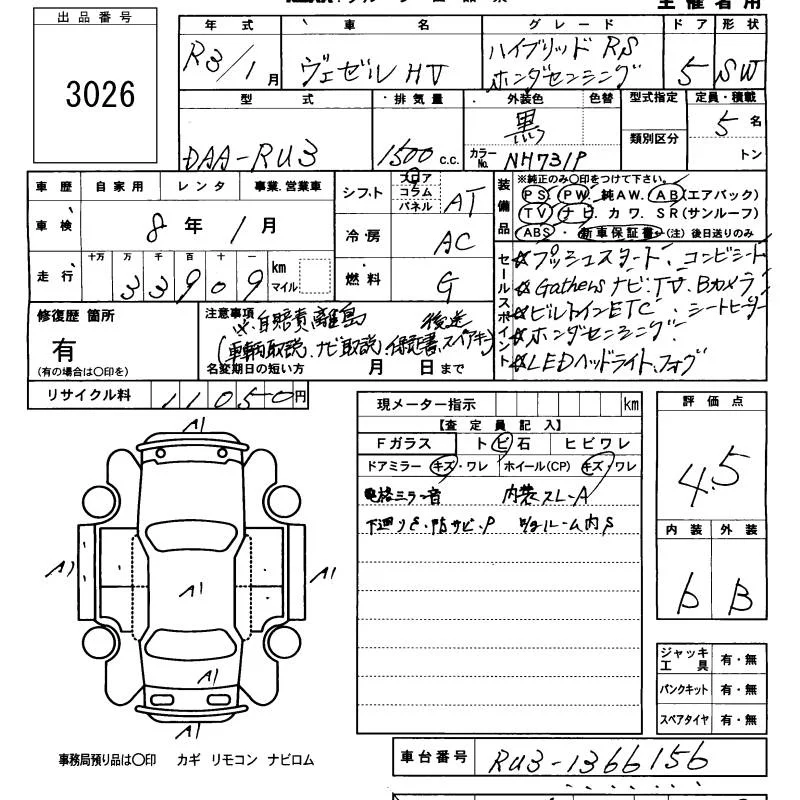 出品番号
3026
年式 車名 グレード ドア 形状
R3/1月 ヴェゼル HV ハイブリッド RS ホンダセンシング 5 SW
型式 排気量 外装色 色替 型式指定 定員・積載
DAA-RU3 1500 c.c. 黒 カラーNo. NH731P 類別区分 5名
トン
車歴 自家用 レンタ 事業.営業車
車検 8年 1月
走行 十万 万 千 百 十 一
33909 km マイル
シフト フロア コラム パネル AT
冷・房 AC
燃料 G
装備品 ※純正のみ〇印をつけて下さい。
PS. PW. 純AW. AB(エアバック)
TV. ナビ. カワ. SR(サンルーフ)
ABS・新車保証書(注)後日送りのみ
セールスポイント
☆プッシュスタート・コンビシート
☆Gathers ナビ・TV・Bカメラ
☆ビルトインETC・シートヒーター
☆ホンダセンシング
☆LEDヘッドライト、フォグ
修復歴 箇所
有
(有の場合は〇印を)
注意事項 ※自賠責離島 後送
(車輌取説、ナビ取説、保証書、スペアキー)
名変期日の短い方 月 日まで
リサイクル料 11050円
現メーター指示 km
【査定員記入】
Fガラス トビ石 ヒビワレ
ドアミラー キズ・ワレ ホイール(CP) キズ・ワレ
格ミラー音 内装スレ-A
下廻りS、 サビ、P ルーム内S
評価点
4.5
内装 外装
b B
ジャッキ工具 有・無
パンクキット 有・無
スペアタイヤ 有・無
A1
A1 A1 A1
A1
A1
事務局預り品は〇印 カギ リモコン ナビロム
車台番号 RU3-1366156